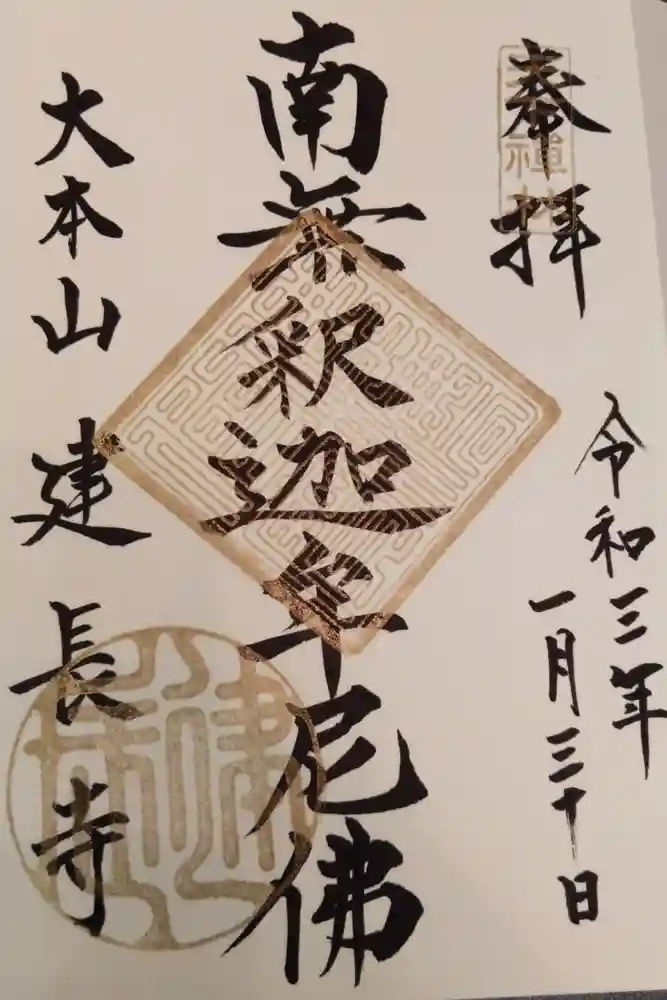 奉拝
令和三年
一月三十日
南無釈迦牟尼佛
大本山 建長寺